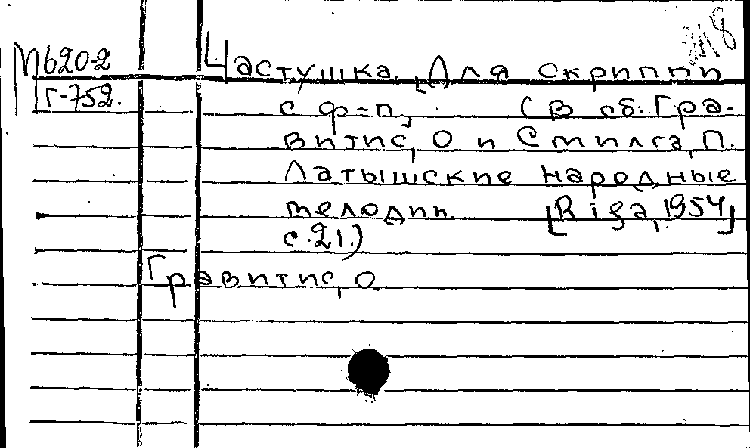 М620-2
Г-752.
Частушка. [Для скрипки
с ф-п, (в сб. Гра-
витис, О и Смилга, П.
Латышские народные
мелодии. [Riga, 1954]
с. 21.)
Гравитис, О